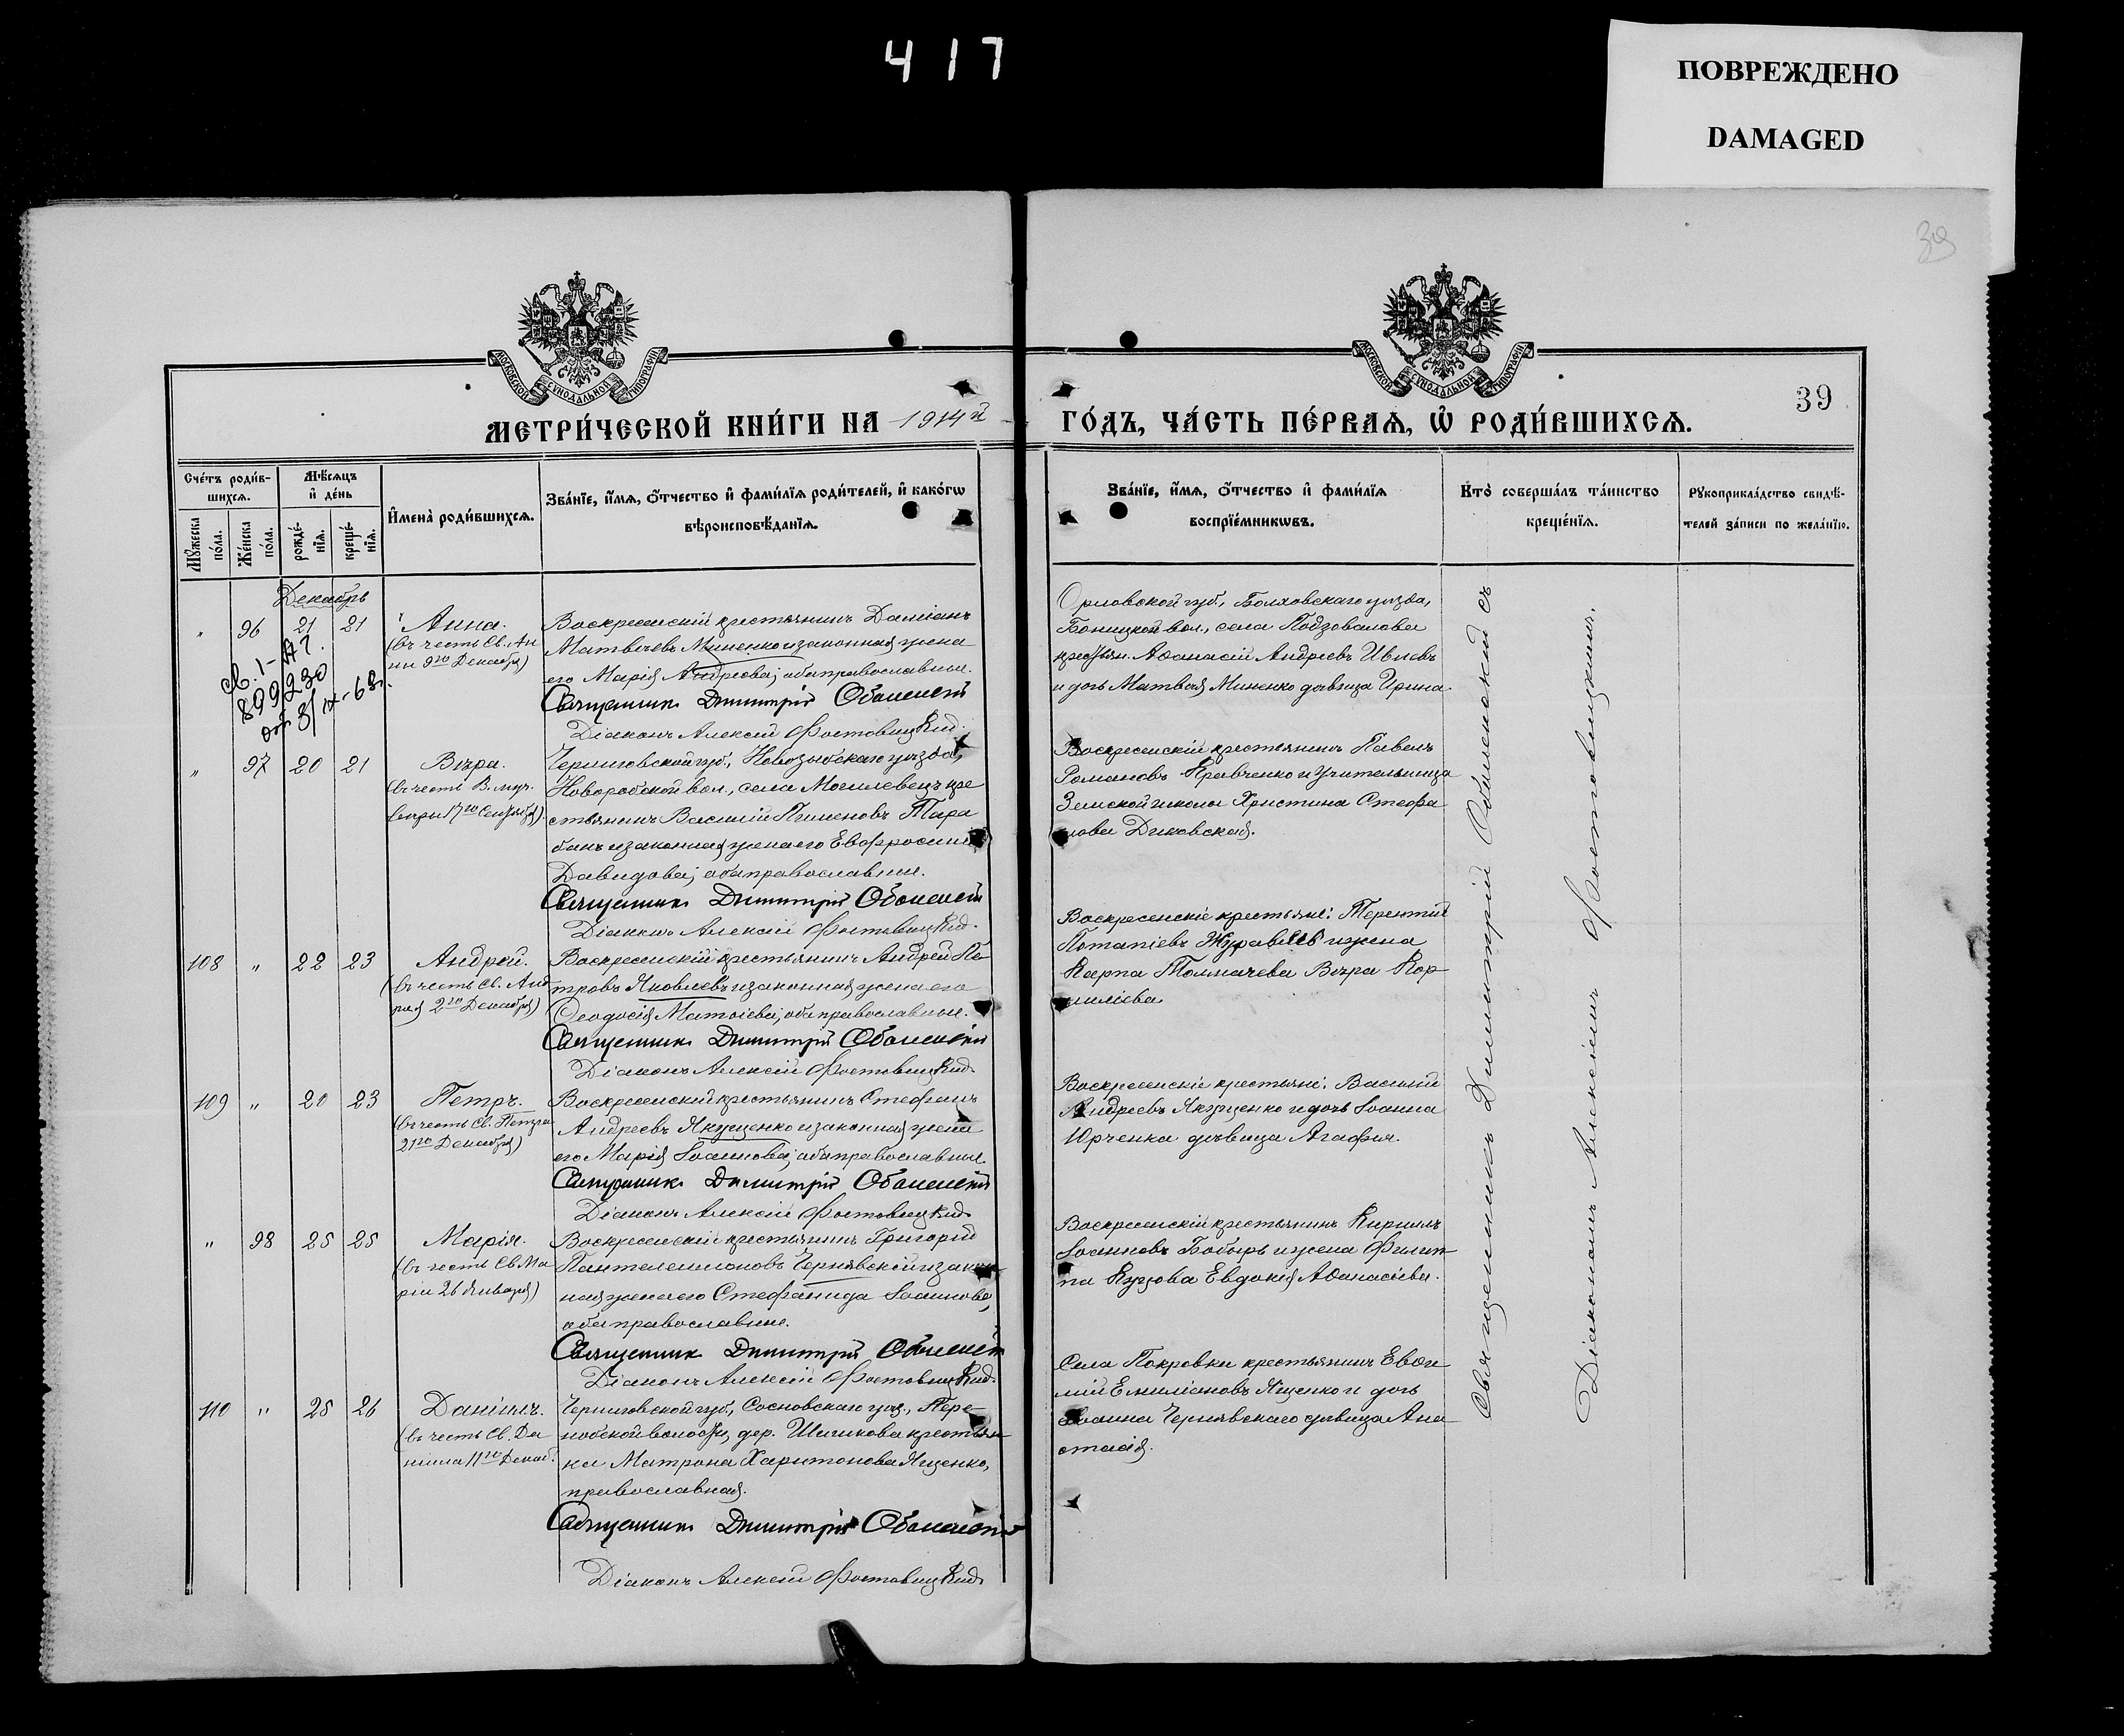 417
ПОВРЕЖДЕНО
DAMAGED
39
МОСКОВСКОЙ СѴНОДАЛЬНОЙ ТИПОГРАФІИ
МОСКОВСКОЙ СѴНОДАЛЬНОЙ ТИПОГРАФІИ
39
МЕТРИ́ЧЕСКОЙ КНИ́ГИ НА 1914й ГО́ДЪ, ЧА́СТЬ ПЕ́РВАѦ, Ѡ҆ РОДИ́ВШИХСѦ.
Сче́тъ роди́в-
шихсѧ.
Мꙋ́жеска
по́ла.
Же́нска
по́ла.
Мѣ́сѧцъ
и҆ де́нь
рожде́-
нїѧ.
креще́-
нїѧ.
И҆мена̀ роди́вшихсѧ.
Зва́нїе, и҆́мѧ, ѻ҆́тчество и҆ фами́лїѧ роди́телей, и҆ како́гѡ
вѣроисповѣ́данїѧ.
Зва́нїе, и҆́мѧ, ѻ҆́тчество и҆ фами́лїѧ
воспрїе́мникѡвъ.
Кто̀ соверша́лъ та́инство
креще́нїѧ.
Рꙋкоприкла́дство свидѣ́-
телей за́писи по жела́нїю.
Декабрь
" 96 21 21 Анна.
(въ честь Св. Ан
ны 9го Декабря)
Воскресенскій крестьянинъ Даміанъ
Матвѣевъ Миненко и законная жена
его Марія Андреева; оба православные.
Священникъ Димитрій Оболенскій
Діаконъ Алексій Фостовицкій.
Орловской губ., Болховскаго уѣзда,
вол., села Подзовалова
крестьян. Аѳанасій Андреевъ Ивлевъ
и дочь Матвѣя Миненко дѣвица Ирина.
899230
" 97 20 21 Вѣра.
(въ честь В. муч.
Вѣры 17го Сентября)
Черниговской губ., Новозыбскаго уѣзда,
вол., села Могилевецъ кре
стьянинъ Василій Пименовъ Тара
банъ и законная жена его Евфросинія
Давидова; оба православные.
Священникъ Димитрій Оболенскій
Діаконъ Алексій Фостовицкій.
Воскресенскій крестьянинъ Павелъ
Романовъ Кравченко и Учительница
Земской школы Христина Стефа
нова Диковская.
108 " 22 23 Андрей.
(въ честь Св. Анд
рея 2го Декабря)
Воскресенскій крестьянинъ Андрей Пе-
тровъ Яковлевъ и законная жена его
Ѳеодосія Матвіева; оба православные.
Священникъ Димитрій Оболенскій
Діаконъ Алексій Фостовицкій.
Воскресенскіе крестьяне: Терентій
Потапіевъ Журавлевъ и жена
Карпа Толмачева Вѣра Кор-
ниліева.
109 " 20 23 Петръ.
(въ честь Св. Петра
21го Декабря)
Воскресенскій крестьянинъ Стефанъ
Андреевъ Якущенко и законная жена
его Марія Іоаннова; оба православные.
Священникъ Димитрій Оболенскій
Діаконъ Алексій Фостовицкій.
Воскресенскіе крестьяне: Василій
Андреевъ Якущенко и дочь Іоанна
Юрченка дѣвица Агафія.
" 98 25 25 Марія.
(въ честь Св. Ма
ріи 26 Января)
Воскресенскій крестьянинъ Григорій
Пантелеимоновъ Чернявскій и закон
ная жена его Стефанида Іоаннова,
оба православные.
Священникъ Димитрій Оболенскій
Діаконъ Алексій Фостовицкій.
Воскресенскій крестьянинъ Кириллъ
Іоанновъ Бобырь и жена Филип-
па Куцова Евдокія Аѳанасіева.
110 " 25 26 Даніилъ.
(въ честь Св. Да
ніила 11го Декаб.)
Черниговской губ., Сосновскаго уѣз., Пере-
волости, дер. крестьян-
ка Матрона Харитонова Ященко,
православная.
Священникъ Димитрій Оболенскій
Діаконъ Алексій Фостовицкій
Села Покровки крестьянинъ Евѳи
мій Емиліановъ Ященко и дочь
Іоанна Чернявскаго дѣвица Ана
стасія.
Священникъ Димитрій Оболенскій съ
Діакономъ Алексіемъ Фостовицкимъ.